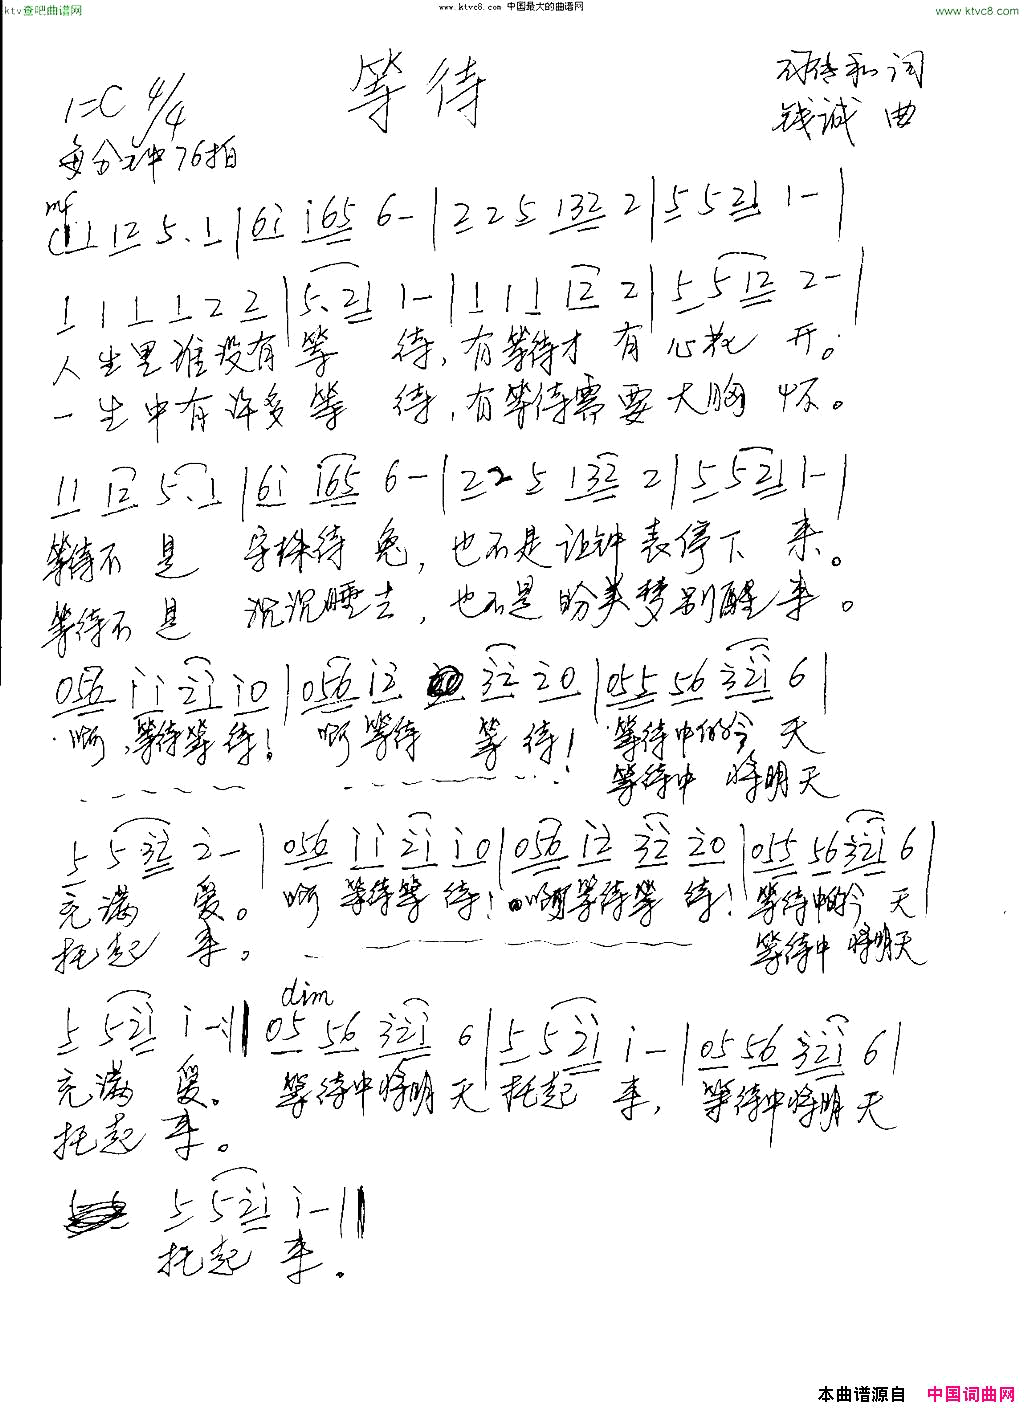 ktv查吧曲谱网 www.ktvc8.com 中国最大的曲谱网 www.ktvc8.com
等待
和词
1=C 4/4
钱诚 曲
每分钟76拍
mf
(11 12 5. 1 | 6i i65 6- | 2 2 5 132 2 | 5 5 21 1- |
1 1 1 1 2 2 | 5. 21 1- | 1 1 1 12 2 | 5 5 12 2- |
人生里谁没有等 待,有等待才 有 心花 开。
一生中有许多等 待,有等待需 要 大胸 怀。
11 12 5. 1 | 6i i65 6- | 2 2 5 132 2 | 5 5 21 1- |
等待不 是 守株待 兔, 也不是让钟 表停下 来。
等待不 是 沉沉睡去, 也不是盼美梦别醒 来。
056 ii 2i i0 | 056 i2 32 20 | 055 56 32i 6 |
啊,等待等 待! 啊 等待 等 待! 等待中的今 天
等待中 将明天
5 5 32 2- | 056 ii 2i i0 | 056 i2 32 20 | 055 56 32i 6 |
充满 爱。 啊 等待等 待! 啊等待等 待! 等待中的今 天
托起 来。 等待中 将明天
dim
5 5 2i i- || 05 56 32i 6 | 5 5 2i i- | 05 56 32i 6 |
充满 爱。 等待中将明 天 托起 来, 等待中将明 天
托起 来。
5 5 2i i- ||
托起 来。
本曲谱源自 中国词曲网